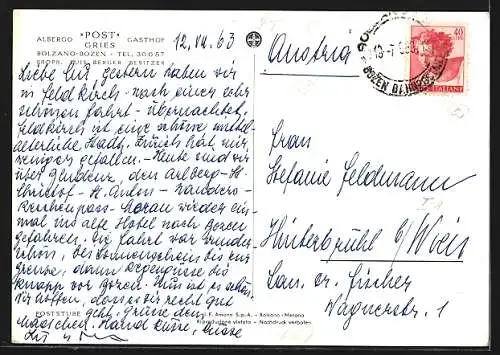 ALBERGO "POST" GASTHOF
GRIES
BOLZANO-BOZEN - TEL. 30057
PROPR. LUIS BERGER BESITZER
12. VII. 63
Liebe gestern haben wir
in Feldkirch - nach einer sehr
schönen Fahrt - übernachtet.
Feldkirch ist eine schöne mittel-
alterliche Stadt. Zürich hat mir
weniger gefallen. - Heute sind wir
über Bludenz, den Arlberg - St.
Christof - St. Anton - Landeck -
Reschenpass - Meran wieder ein-
mal ins alte Hotel nach Bozen
gefahren. Die Fahrt war wunder-
schön, bei Sonnenschein bis zur
Grenze, dann Regengüsse bis
knapp vor Bozen. Uns ist es schön
Wir hoffen, dass es recht gut
geht. Grüsse den
Handküsse,
POSTSTUBE
F. Amonn S.p.A. - Bolzano - Merano
Riproduzione vietata - Nachdruck verboten
Austria
40
ITALIANE
BOZEN
Frau
Stefanie Feldmann
Hinterbrühl b/ Wien
San. or. Fischer
Wagnerstr. 1